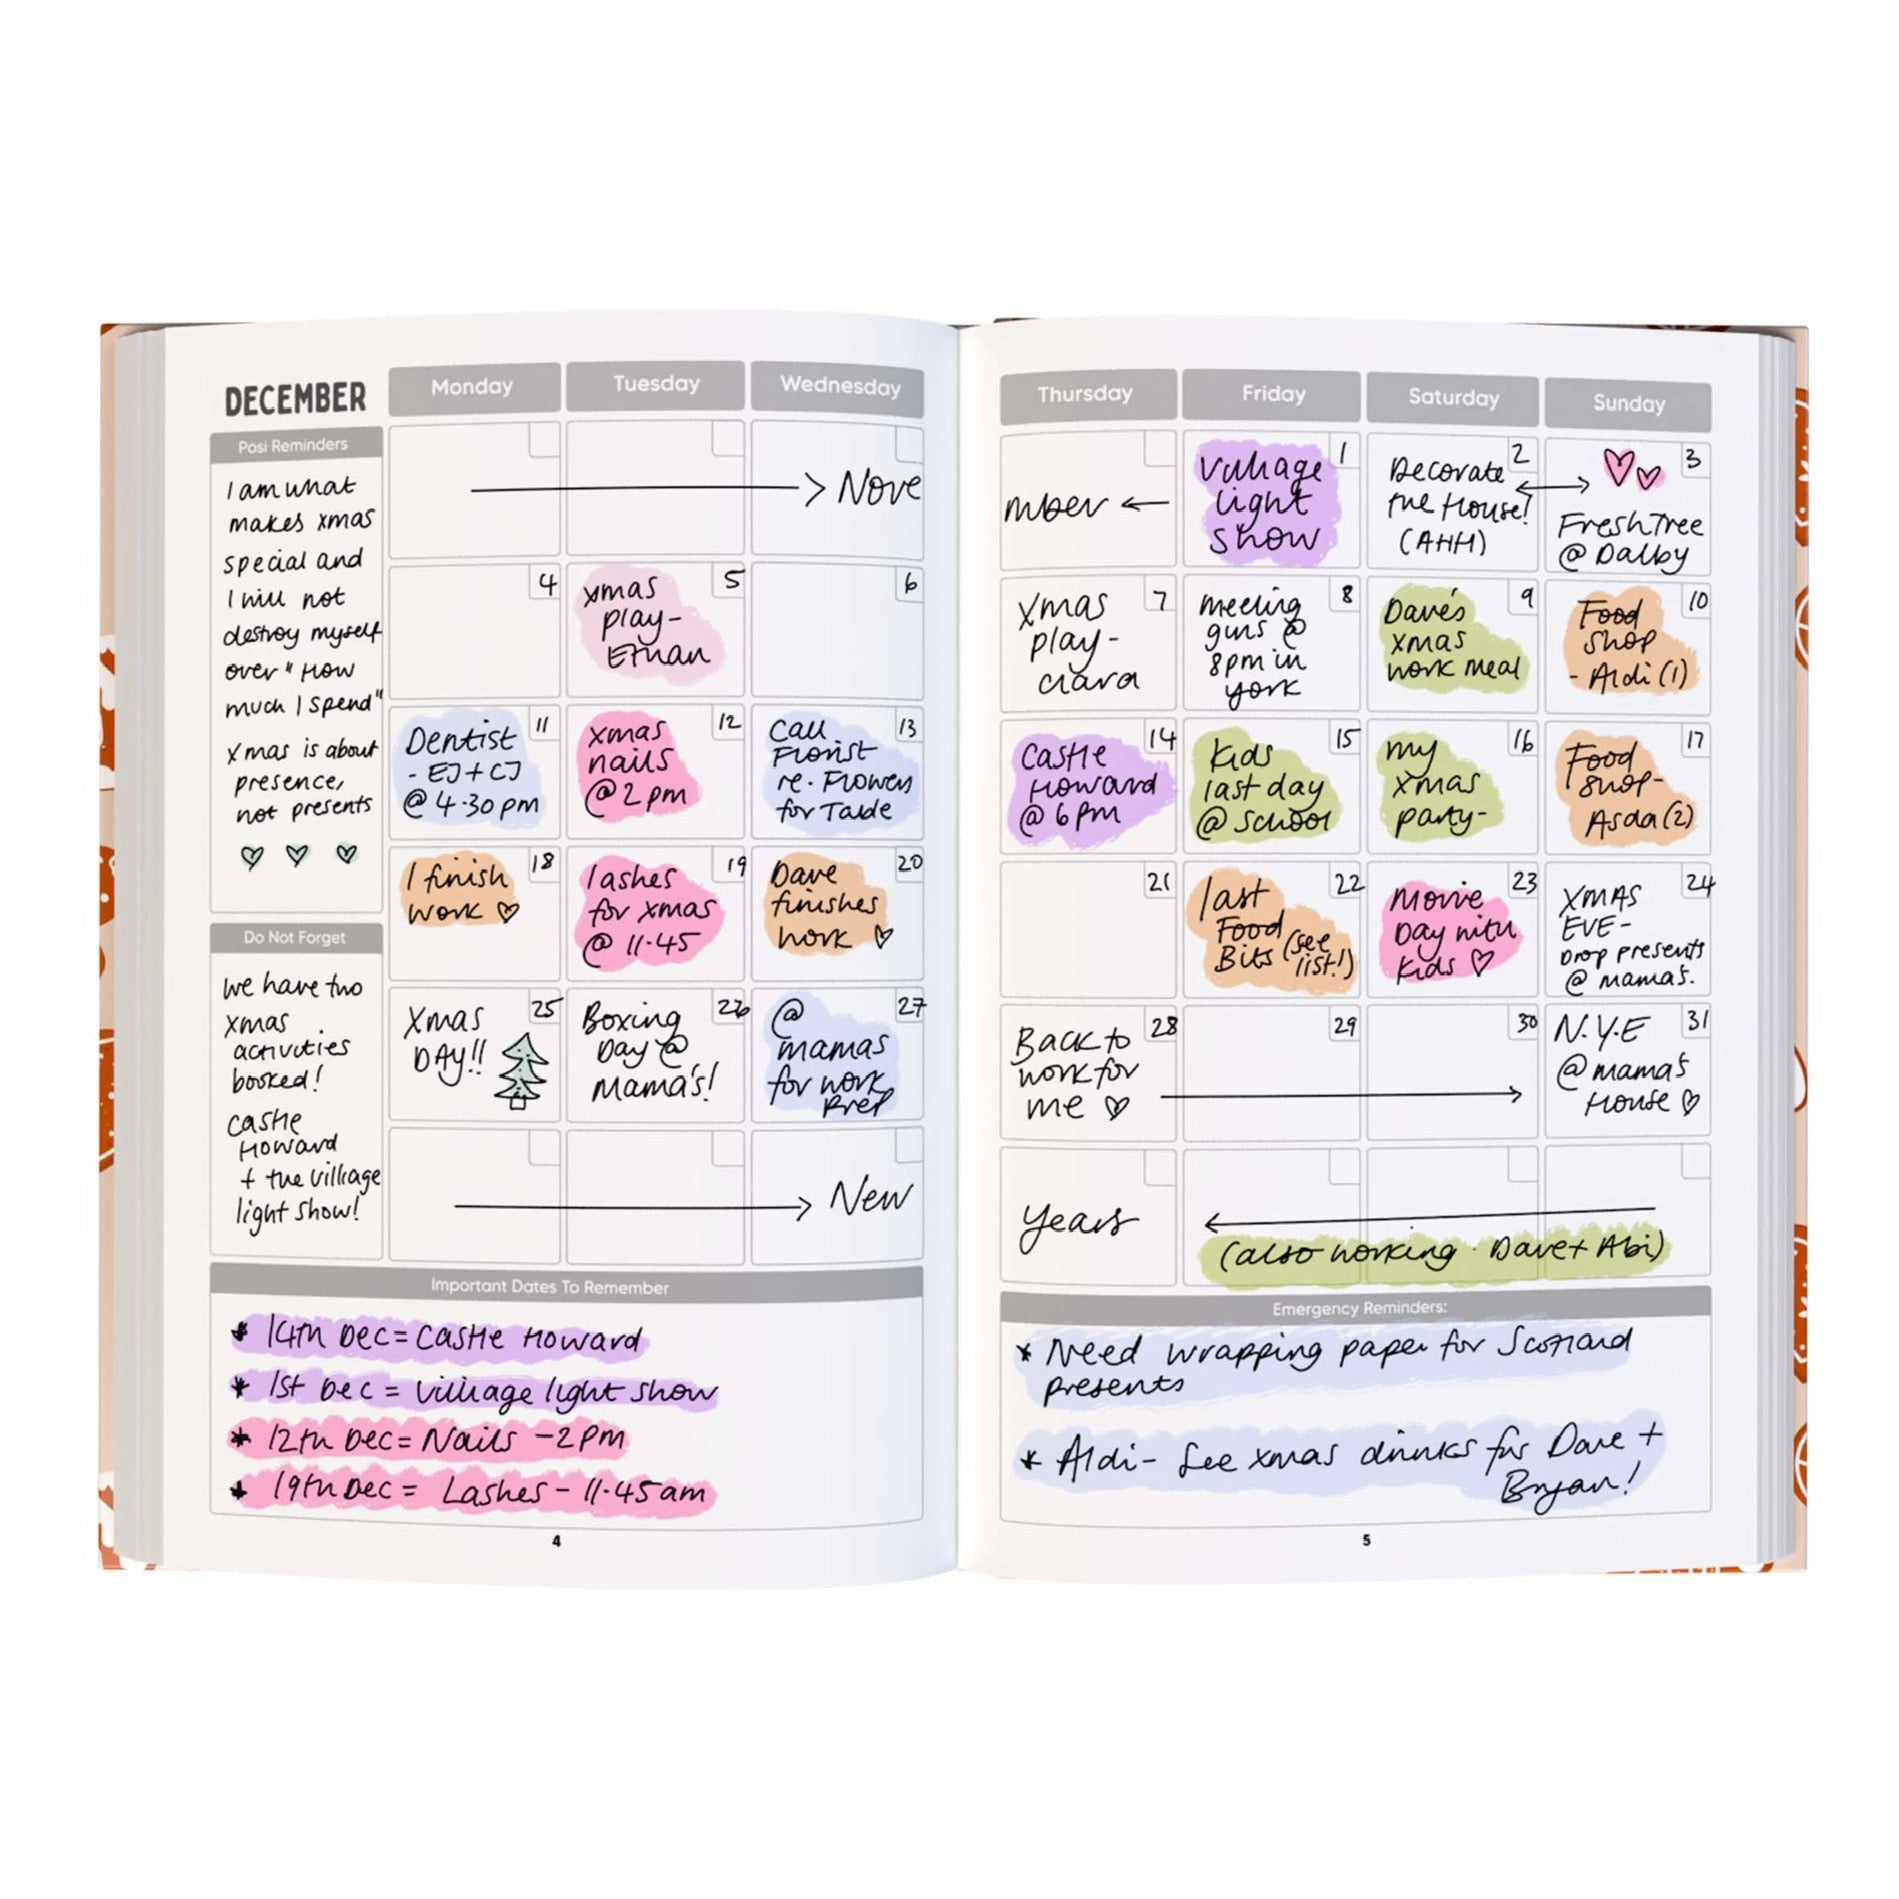 DECEMBER
Monday
Tuesday
Wednesday
Posi Reminders
I am what
makes xmas
special and
I will not
destroy myself
over "How
much I spend"
Xmas is about
presence,
not presents
Do Not Forget
we have two
xmas
activities
booked!
Castle
Howard
+ the village
light show!
Nove
4
xmas
play-
Ethan
5
6
Dentist
- EJ + CJ
@ 4.30pm
11
xmas
nails
@ 2pm
12
Call
Florist
re. Flowers
for Table
13
I finish
work
18
lashes
for xmas
@ 11.45
19
Dave
finishes
work
20
Xmas
DAY!!
25
Boxing
Day @
Mama's!
26
@
mamas
for work
Prep
27
New
Important Dates To Remember
* 14th Dec = Castle Howard
* 1st Dec = village light show
* 12th Dec = Nails - 2pm
* 19th Dec = Lashes - 11.45am
4
Thursday
Friday
Saturday
Sunday
mber
Village
light
show
1
Decorate
the House!
(AHH)
2
3
Fresh Tree
@ Dalby
Xmas
play-
Clara
7
meeting
girls @
8pm in
york
8
Dave's
xmas
work meal
9
Food
Shop
- Aldi (1)
10
Castle
Howard
@ 6pm
14
Kids
last day
@ school
15
my
xmas
party-
16
Food
Shop-
Asda (2)
17
21
last
Food
Bits (see
list!)
22
Movie
Day with
Kids
23
XMAS
EVE-
Drop presents
@ mama's.
24
Back to
work for
me
28
29
30
N.Y.E
@ mama's
House
31
Years
(also working - Dave + Abi)
Emergency Reminders:
* Need wrapping paper for Scotland
presents
* Aldi- See xmas drinks for Dave +
Bryan!
5